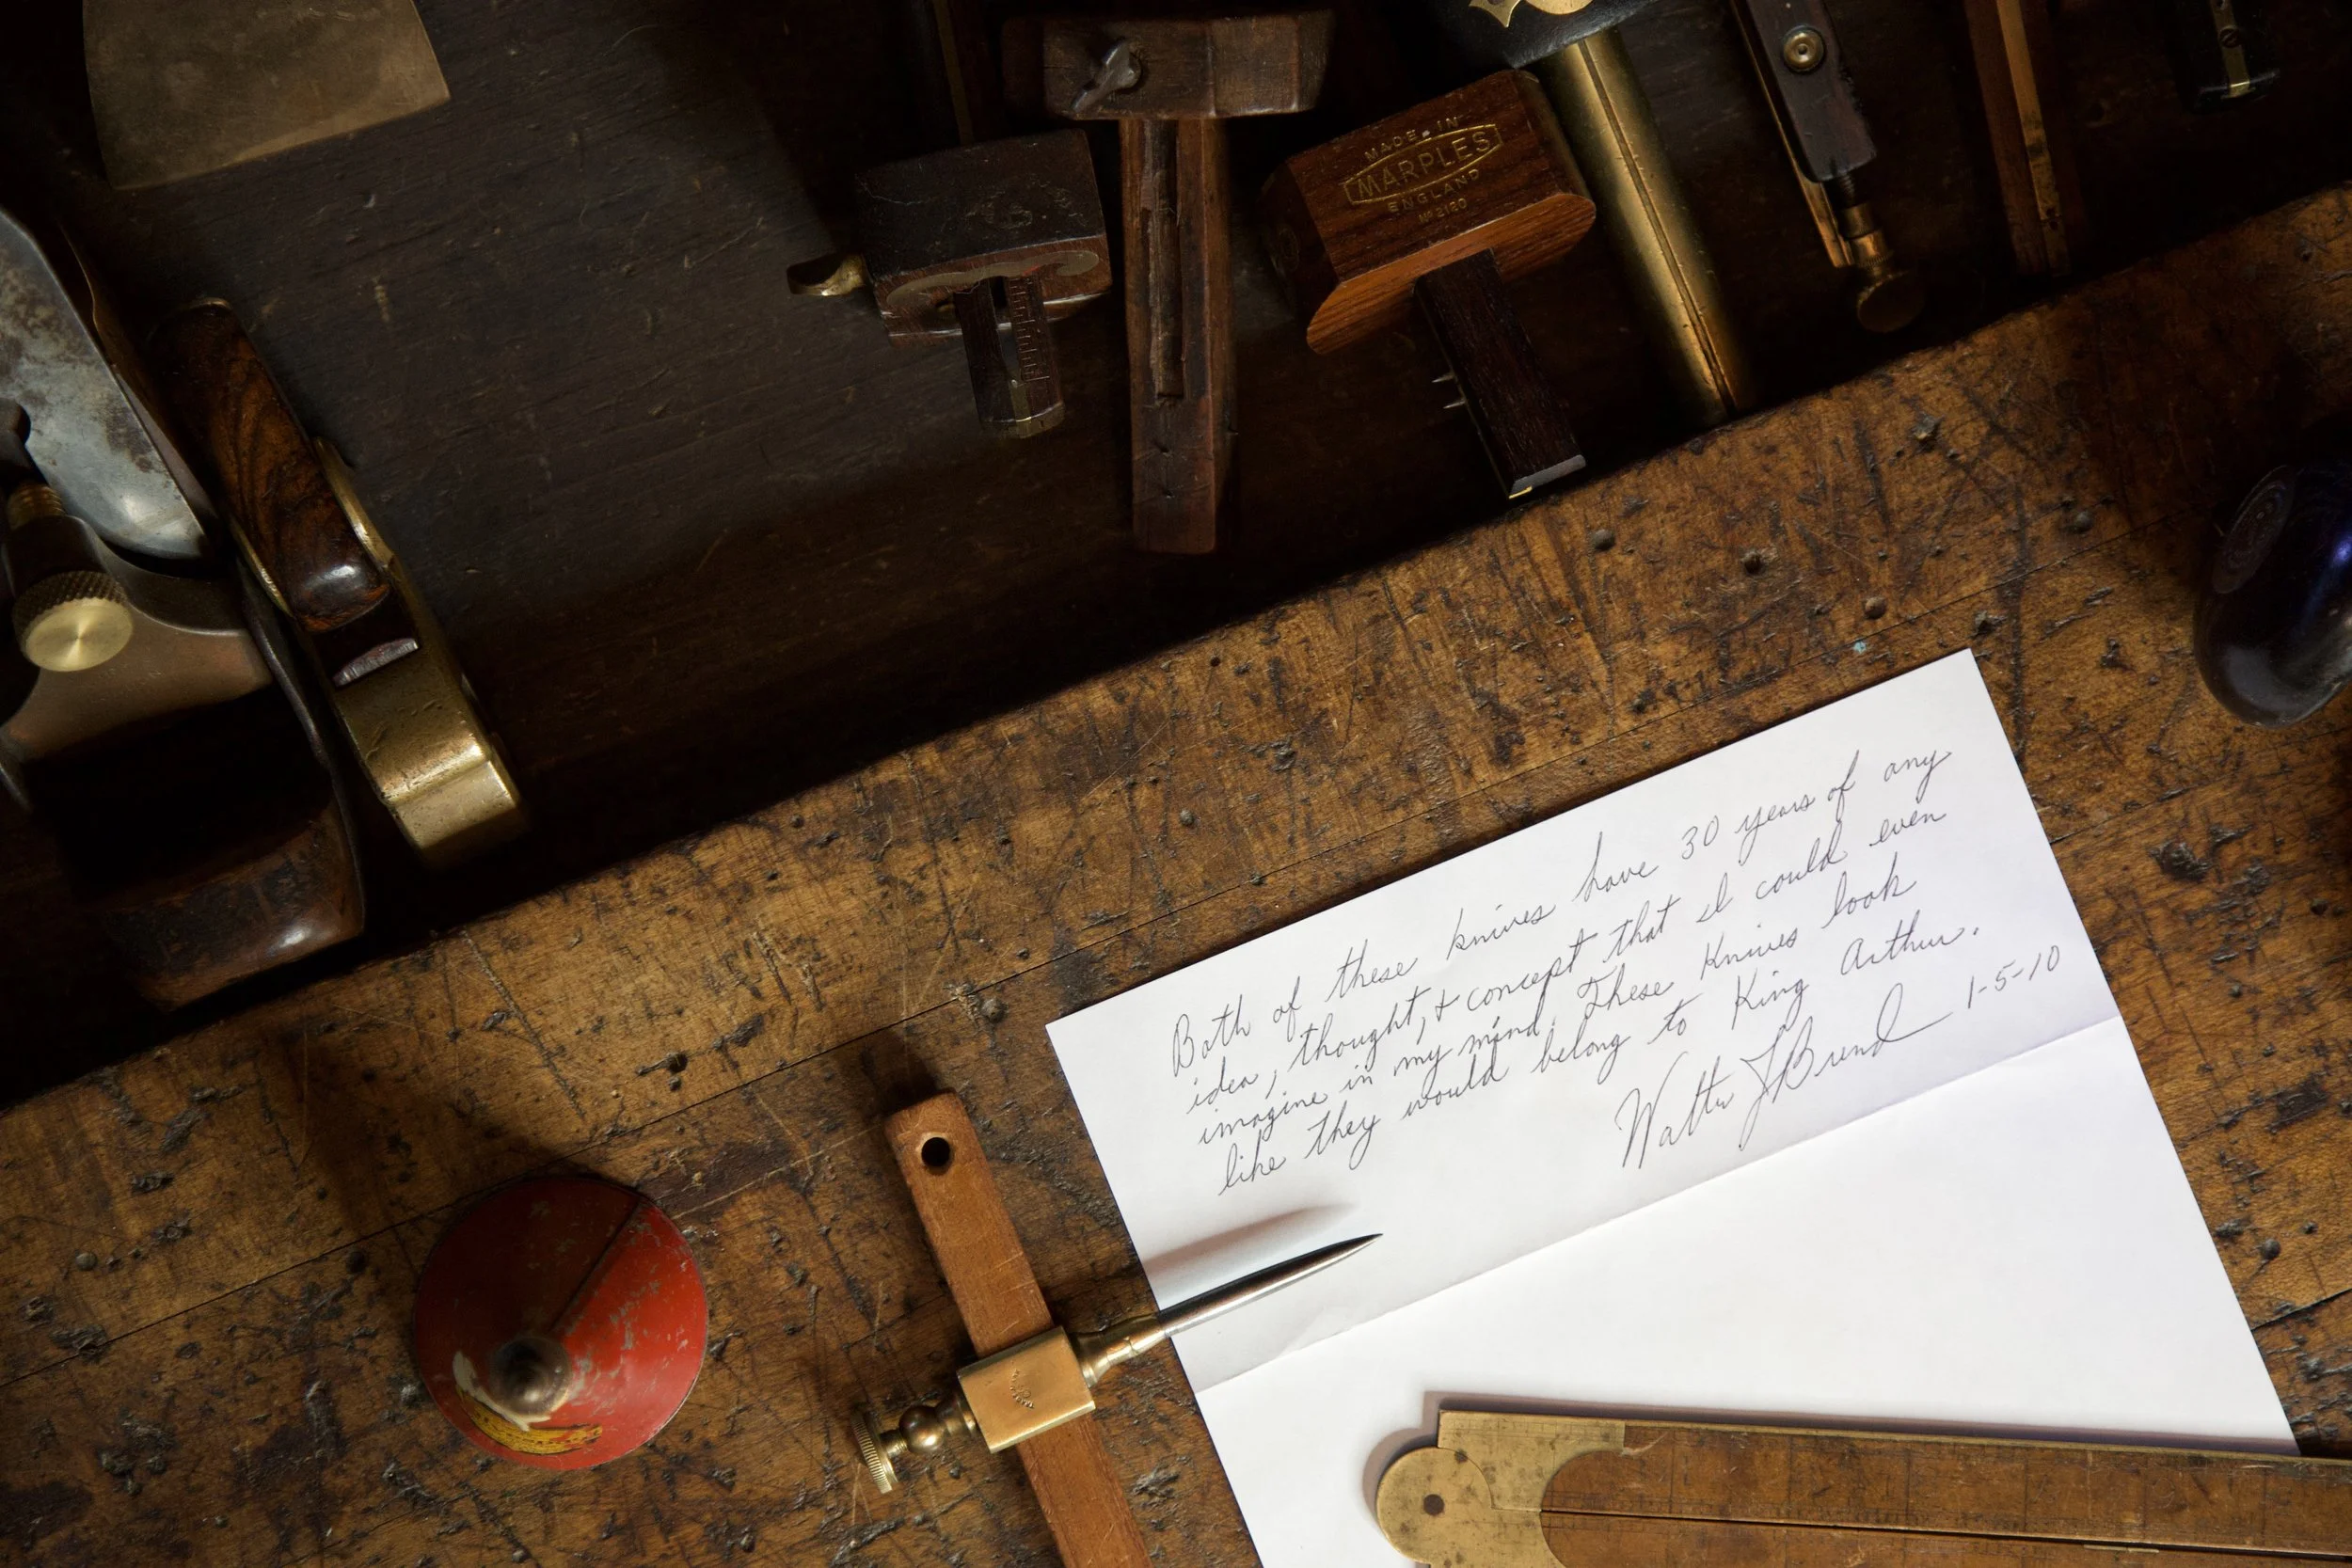 MADE IN
MARPLES
ENGLAND
No 2120
Both of these knives have 30 years of any
idea, thought, & concept that I could even
imagine in my mind. These Knives look
like they would belong to King Arthur.
Walter J Brend 1-5-10